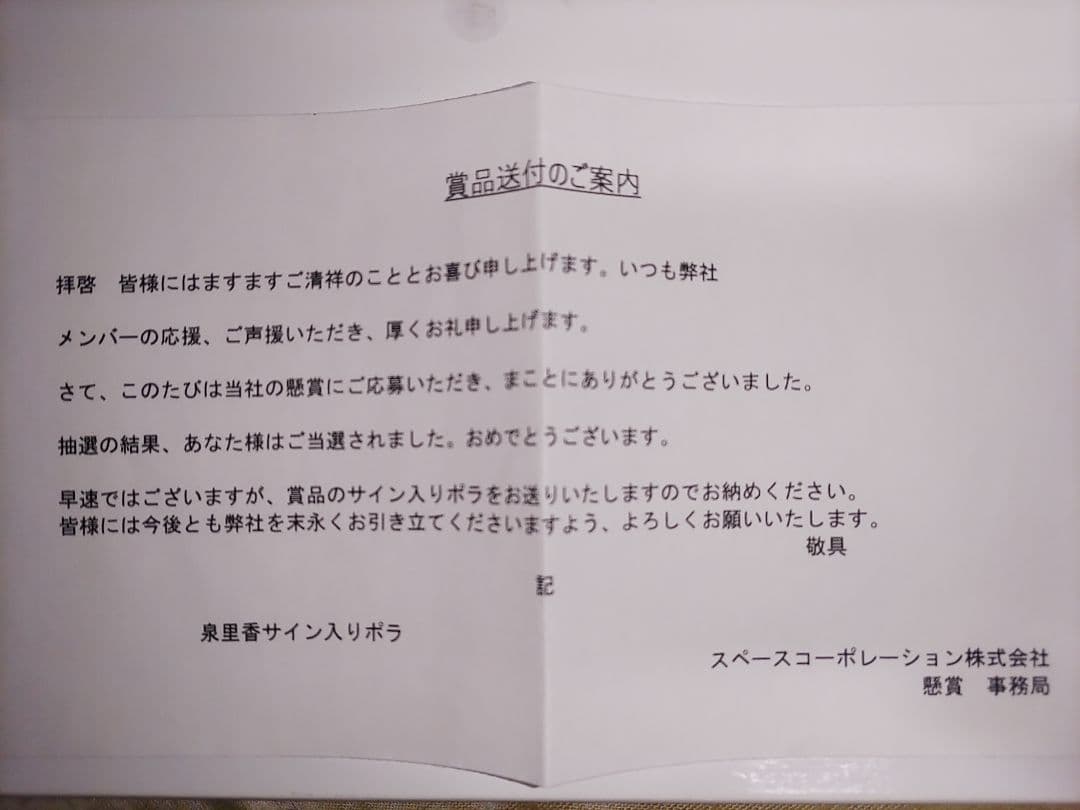 賞品送付のご案内
拝啓　皆様にはますますご清祥のこととお喜び申し上げます。いつも弊社
メンバーの応援、ご声援いただき、厚くお礼申し上げます。
さて、このたびは当社の懸賞にご応募いただき、まことにありがとうございました。
抽選の結果、あなた様はご当選されました。おめでとうございます。
早速ではございますが、賞品のサイン入りポラをお送りいたしますのでお納めください。
皆様には今後とも弊社を末永くお引き立てくださいますよう、よろしくお願いいたします。
敬具
記
泉里香サイン入りポラ
スペースコーポレーション株式会社
懸賞　事務局